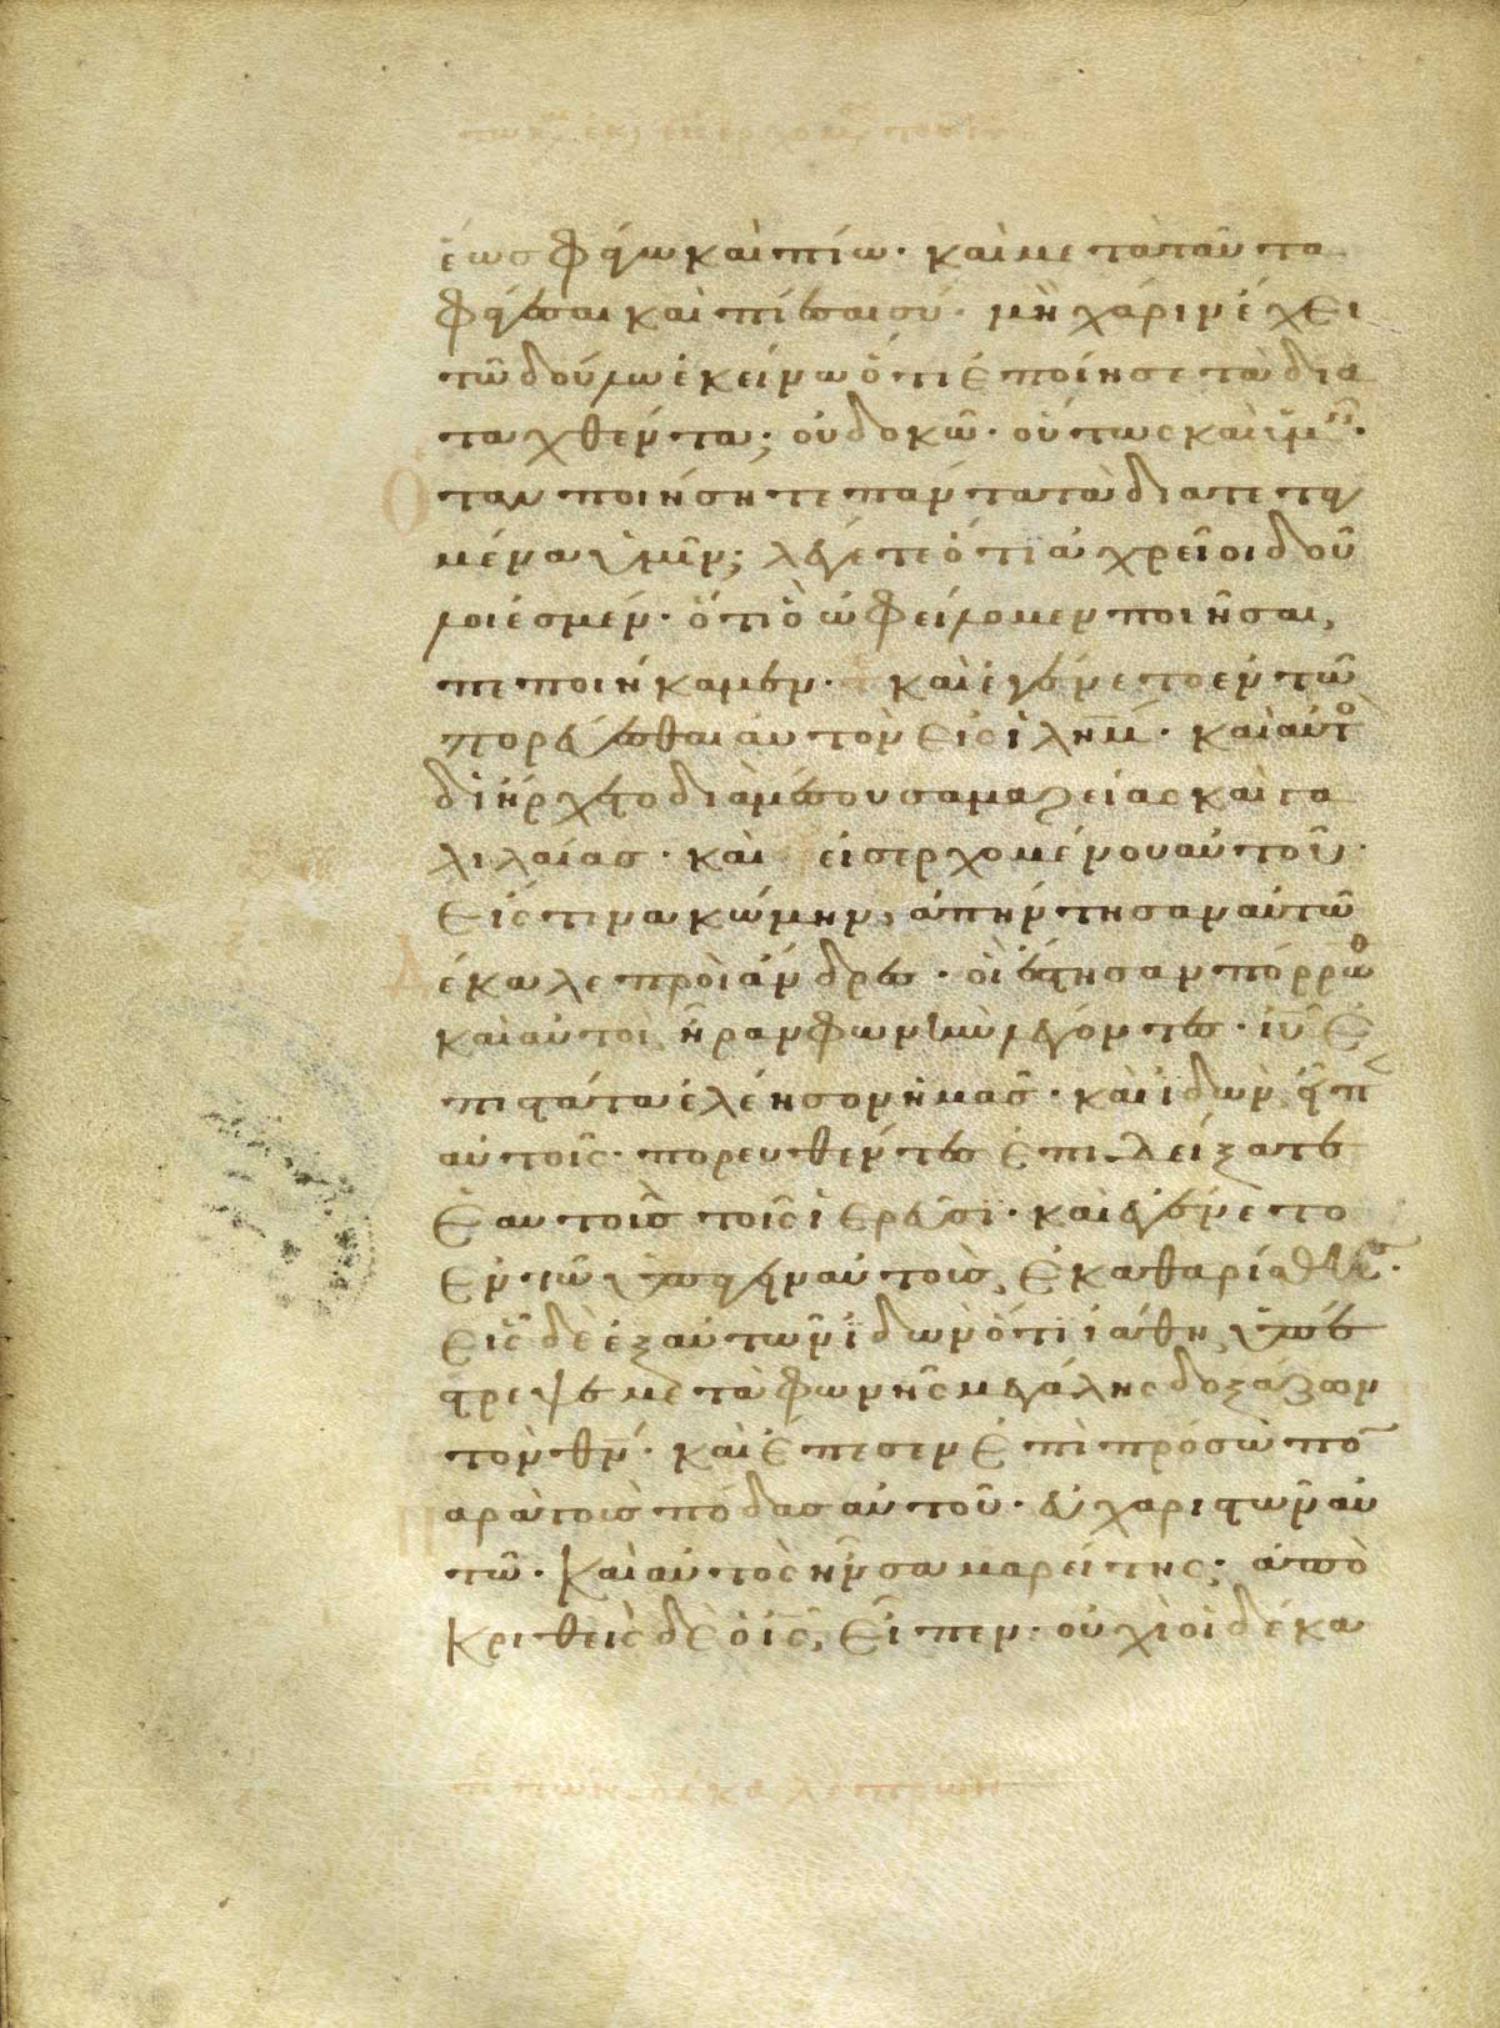 ἕως φάγω και πίω· και μετα ταῦτα
φάγεσαι και πίεσαι σύ· μὴ χάριν ἔχει
τῶ δούλω ἐκείνω ὅτι ἐποίησε τὰ δια
ταχθέντα; οὐ δοκῶ· οὕτως και ὑμεῖς·
Ὅταν ποιήσητε πάντα τὰ διατεταγ
μένα ὑμῖν; λέγετε ὅτι ἀχρεῖοι δοῦ
λοι ἐσμέν· ὅτι ὃ ὠφείλομεν ποιῆσαι,
πεποιήκαμεν· και ἐγένετο ἐν τῶ
πορεύεσθαι αὐτὸν εἰς ἱλημ· και αὐτο
διήρχετο διὰ μέσου σαμαρείας και γα
λιλαίας· και εἰσερχομένου αὐτοῦ·
εἰς τινα κώμην, ἀπήντησαν αὐτῶ
δέκα λεπροὶ ἄνδρες· οἱ ἔστησαν πόρρωθ
και αὐτοὶ ἦραν φωνὴν λέγοντες· ιυ ἐ
πιστάτα ἐλέησον ἡμᾶς· και ἰδὼν εἶπ
αὐτοῖς· πορευθέντες ἐπιδείξατε
ἑαυτοὺς τοῖς ἱερεῦσι· και ἐγένετο
ἐν τῶ ὑπάγειν αὐτοὺς, ἐκαθαρίσθησ·
εἷς δὲ ἐξ αὐτῶν ἰδὼν ὅτι ἰάθη, ὑπέ
στρεψε μετὰ φωνῆς μεγάλης δοξάζων
τὸν θν· και ἔπεσεν ἐπὶ πρόσωπο
παρὰ τοὺς πόδας αὐτοῦ· εὐχαριστῶν αὐ
τῶ· και αὐτὸς ἦν σαμαρείτης· ἀπο
κριθεὶς δὲ ὁ ις, εἶπεν· οὐχὶ οἱ δέκα